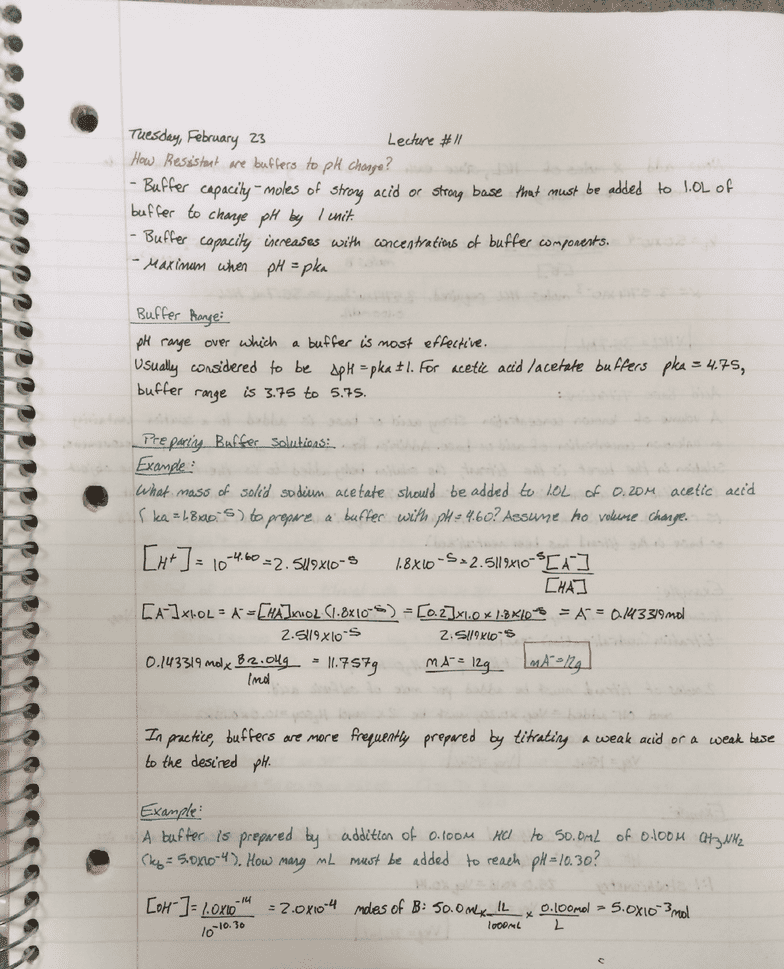 Tuesday, February 23 Lecture #11
How Resistant are buffers to pH change?
- Buffer capacity - moles of strong acid or strong base that must be added to 1.0L of
buffer to change pH by 1 unit.
- Buffer capacity increases with concentrations of buffer components.
- Maximum when pH = pka
Buffer Range:
pH range over which a buffer is most effective.
Usually considered to be ΔpH = pka ± 1. For acetic acid/acetate buffers pka = 4.75,
buffer range is 3.75 to 5.75.
Preparing Buffer Solutions:
Example:
What mass of solid sodium acetate should be added to 1.0L of 0.20M acetic acid
(ka = 1.8x10^-5) to prepare a buffer with pH = 4.60? Assume no volume change.
[H+] = 10^-4.60 = 2.5119x10^-5 1.8x10^-5 = 2.5119x10^-5 [A-]/[HA]
[A-]x1.0L = A- = [HA]x1.0L (1.8x10^-5)/2.5119x10^-5 = [0.2]x1.0x1.8x10^-5/2.5119x10^-5 = A- = 0.143319mol
0.143319mol x 82.04g/1mol = 11.757g mA- = 12g mA- = 12g
In practice, buffers are more frequently prepared by titrating a weak acid or a weak base
to the desired pH.
Example:
A buffer is prepared by addition of 0.100M HCl to 50.0mL of 0.100M CH3NH2
(kb = 5.0x10^-4). How many mL must be added to reach pH = 10.30?
[OH-] = 1.0x10^-14/10^-10.30 = 2.0x10^-4 moles of B: 50.0mL x 1L/1000mL x 0.100mol/L = 5.0x10^-3 mol